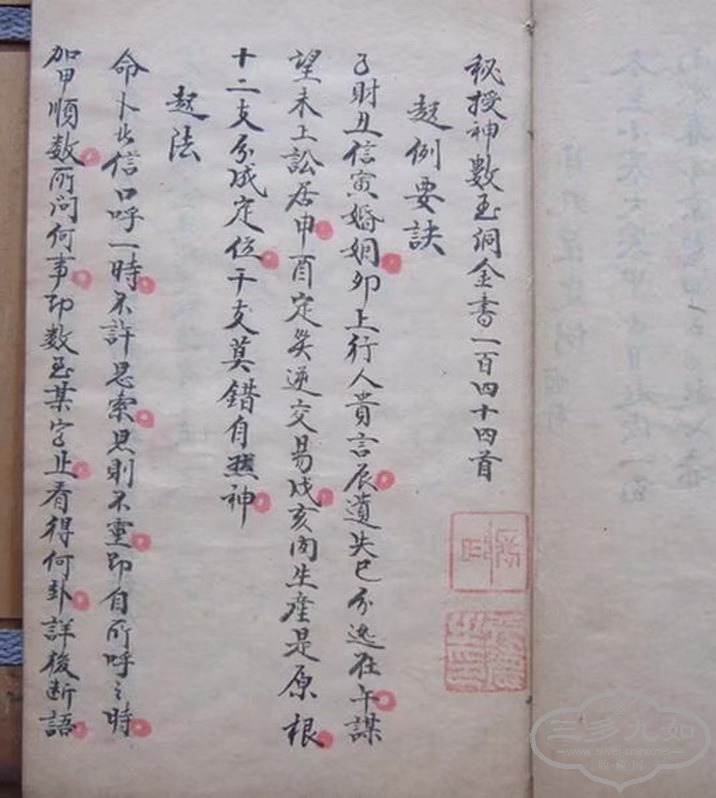 秘授神数玉洞金書一百四十四首
起例要訣
子財丑信寅婚姻卯上行人貴言辰遺失巳分逃在午謀
望未上訟居申酉定災逓交易戌亥向生產是原根
十二支分成定位干支莫錯自照神
起法
命卜者信口呼一時不許思索思則不靈即自所呼之時
加甲順数所問何事即数至某字止看得何卦詳後断語
三多九如
收藏网